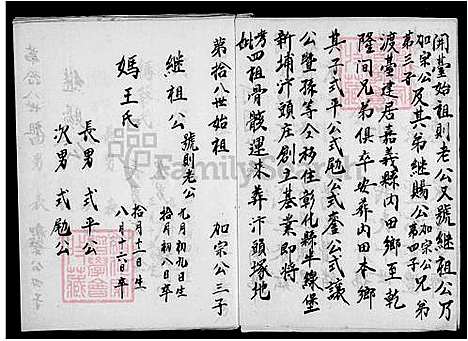 開臺始祖則老公又號繼祖公乃
加宗公及其弟繼賜公加宗公兄弟
第三子 第四子
渡臺建居嘉義縣內田鄉至乾
隆間兄弟俱卒安葬內田本鄉
其子式平公式勉公式奎公式議
公暨孫等仝移住彰化縣半線堡
新埔汴頭庄創立基業即將
考四祖骨骸運來葬汴頭塚地
妣
第拾八世始祖 加宗公三子
繼祖公 號則老公 九月初九日生
拾月初八日卒
媽王氏 拾月十一日生
八月十六日卒
長男 式平公
次男 式勉公
FamilySearch